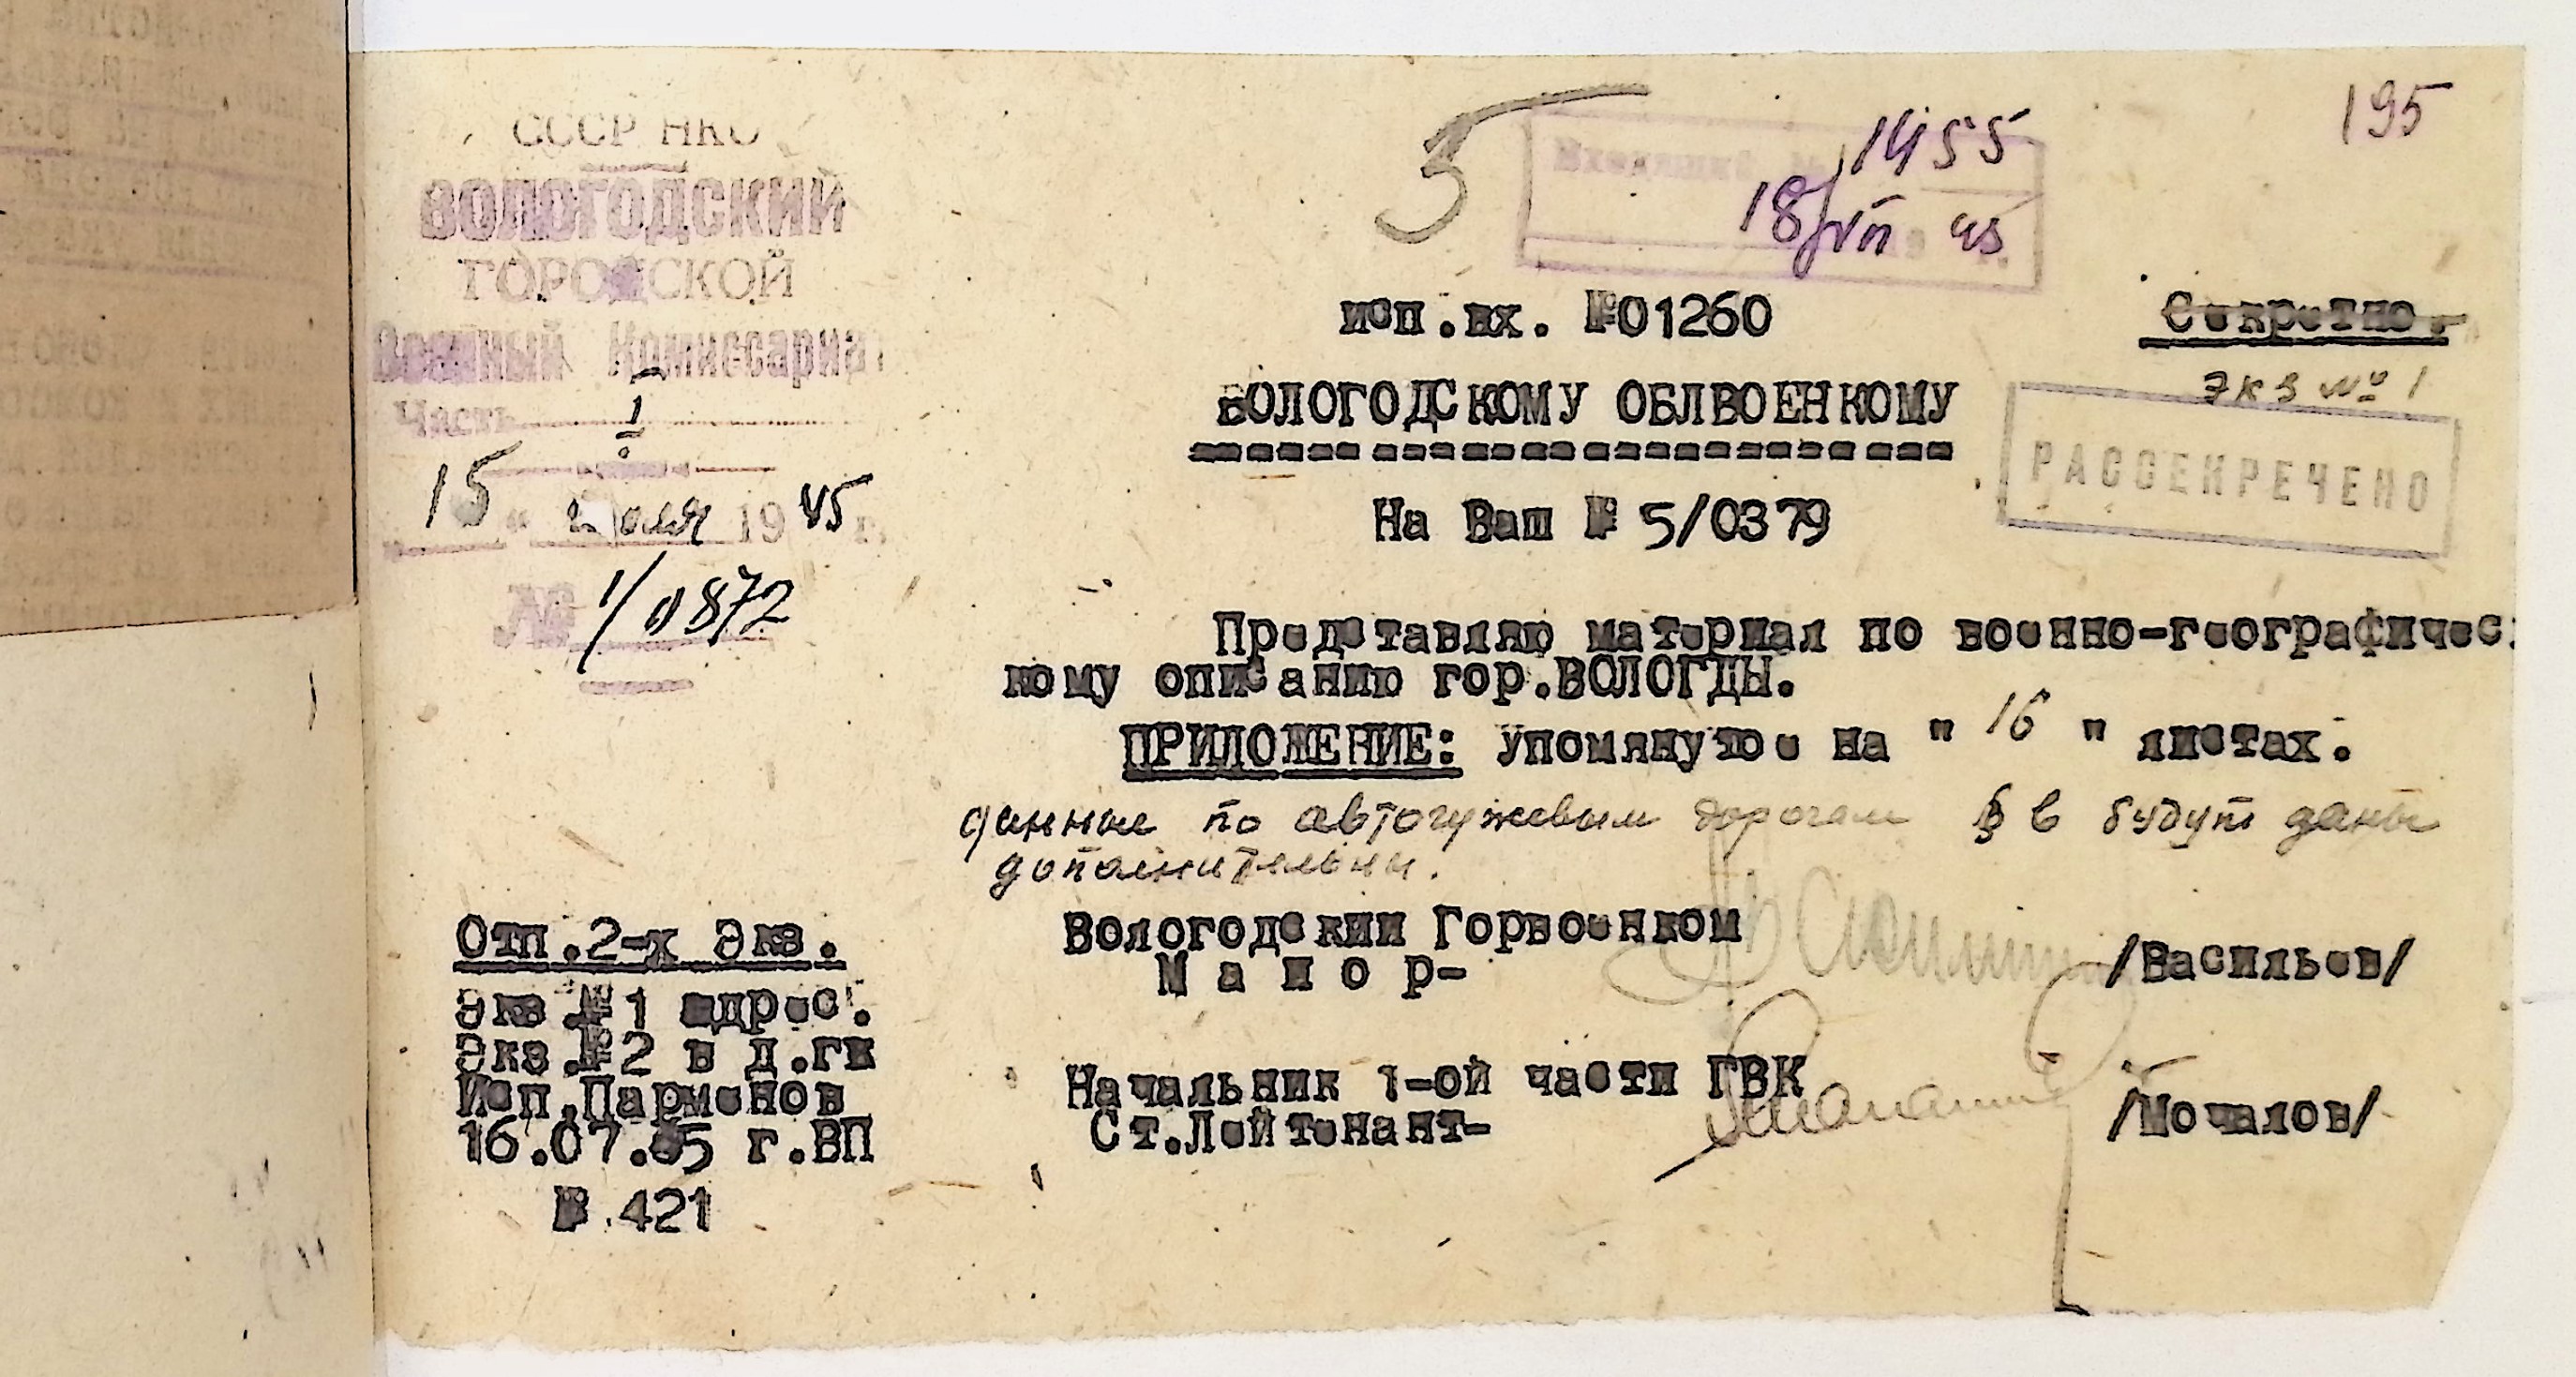 195
5
1455
18/VII 45
СССР НКО
ВОЛОГОДСКИЙ
ГОРОДСКОЙ
Военный Комиссариат
Часть 1
15 " июля 1945 г.
№ 1/0872
исп.вх. №01260
Секретно.
экз № 1
РАССЕКРЕЧЕНО
ВОЛОГОДСКОМУ ОБЛВОЕНКОМУ
На Ваш № 5/0379
Представляю материал по военно-географичес
кому описанию гор.ВОЛОГДЫ.
ПРИЛОЖЕНИЕ: упомянутое на " 16 " листах.
данные по автогужевым дорогам § 6 будут даны
дополнительно.
Вологодский Горвоенком
М а й о р-
/Васильев/
Начальник 1-ой части ГВК
Ст.Лейтенант-
/Мочалов/
Отп.2-х Экз.
Экз №1 адрес.
Экз.№2 в д.гв
Исп.Парменов
16.07.45 г.ВП
№.421